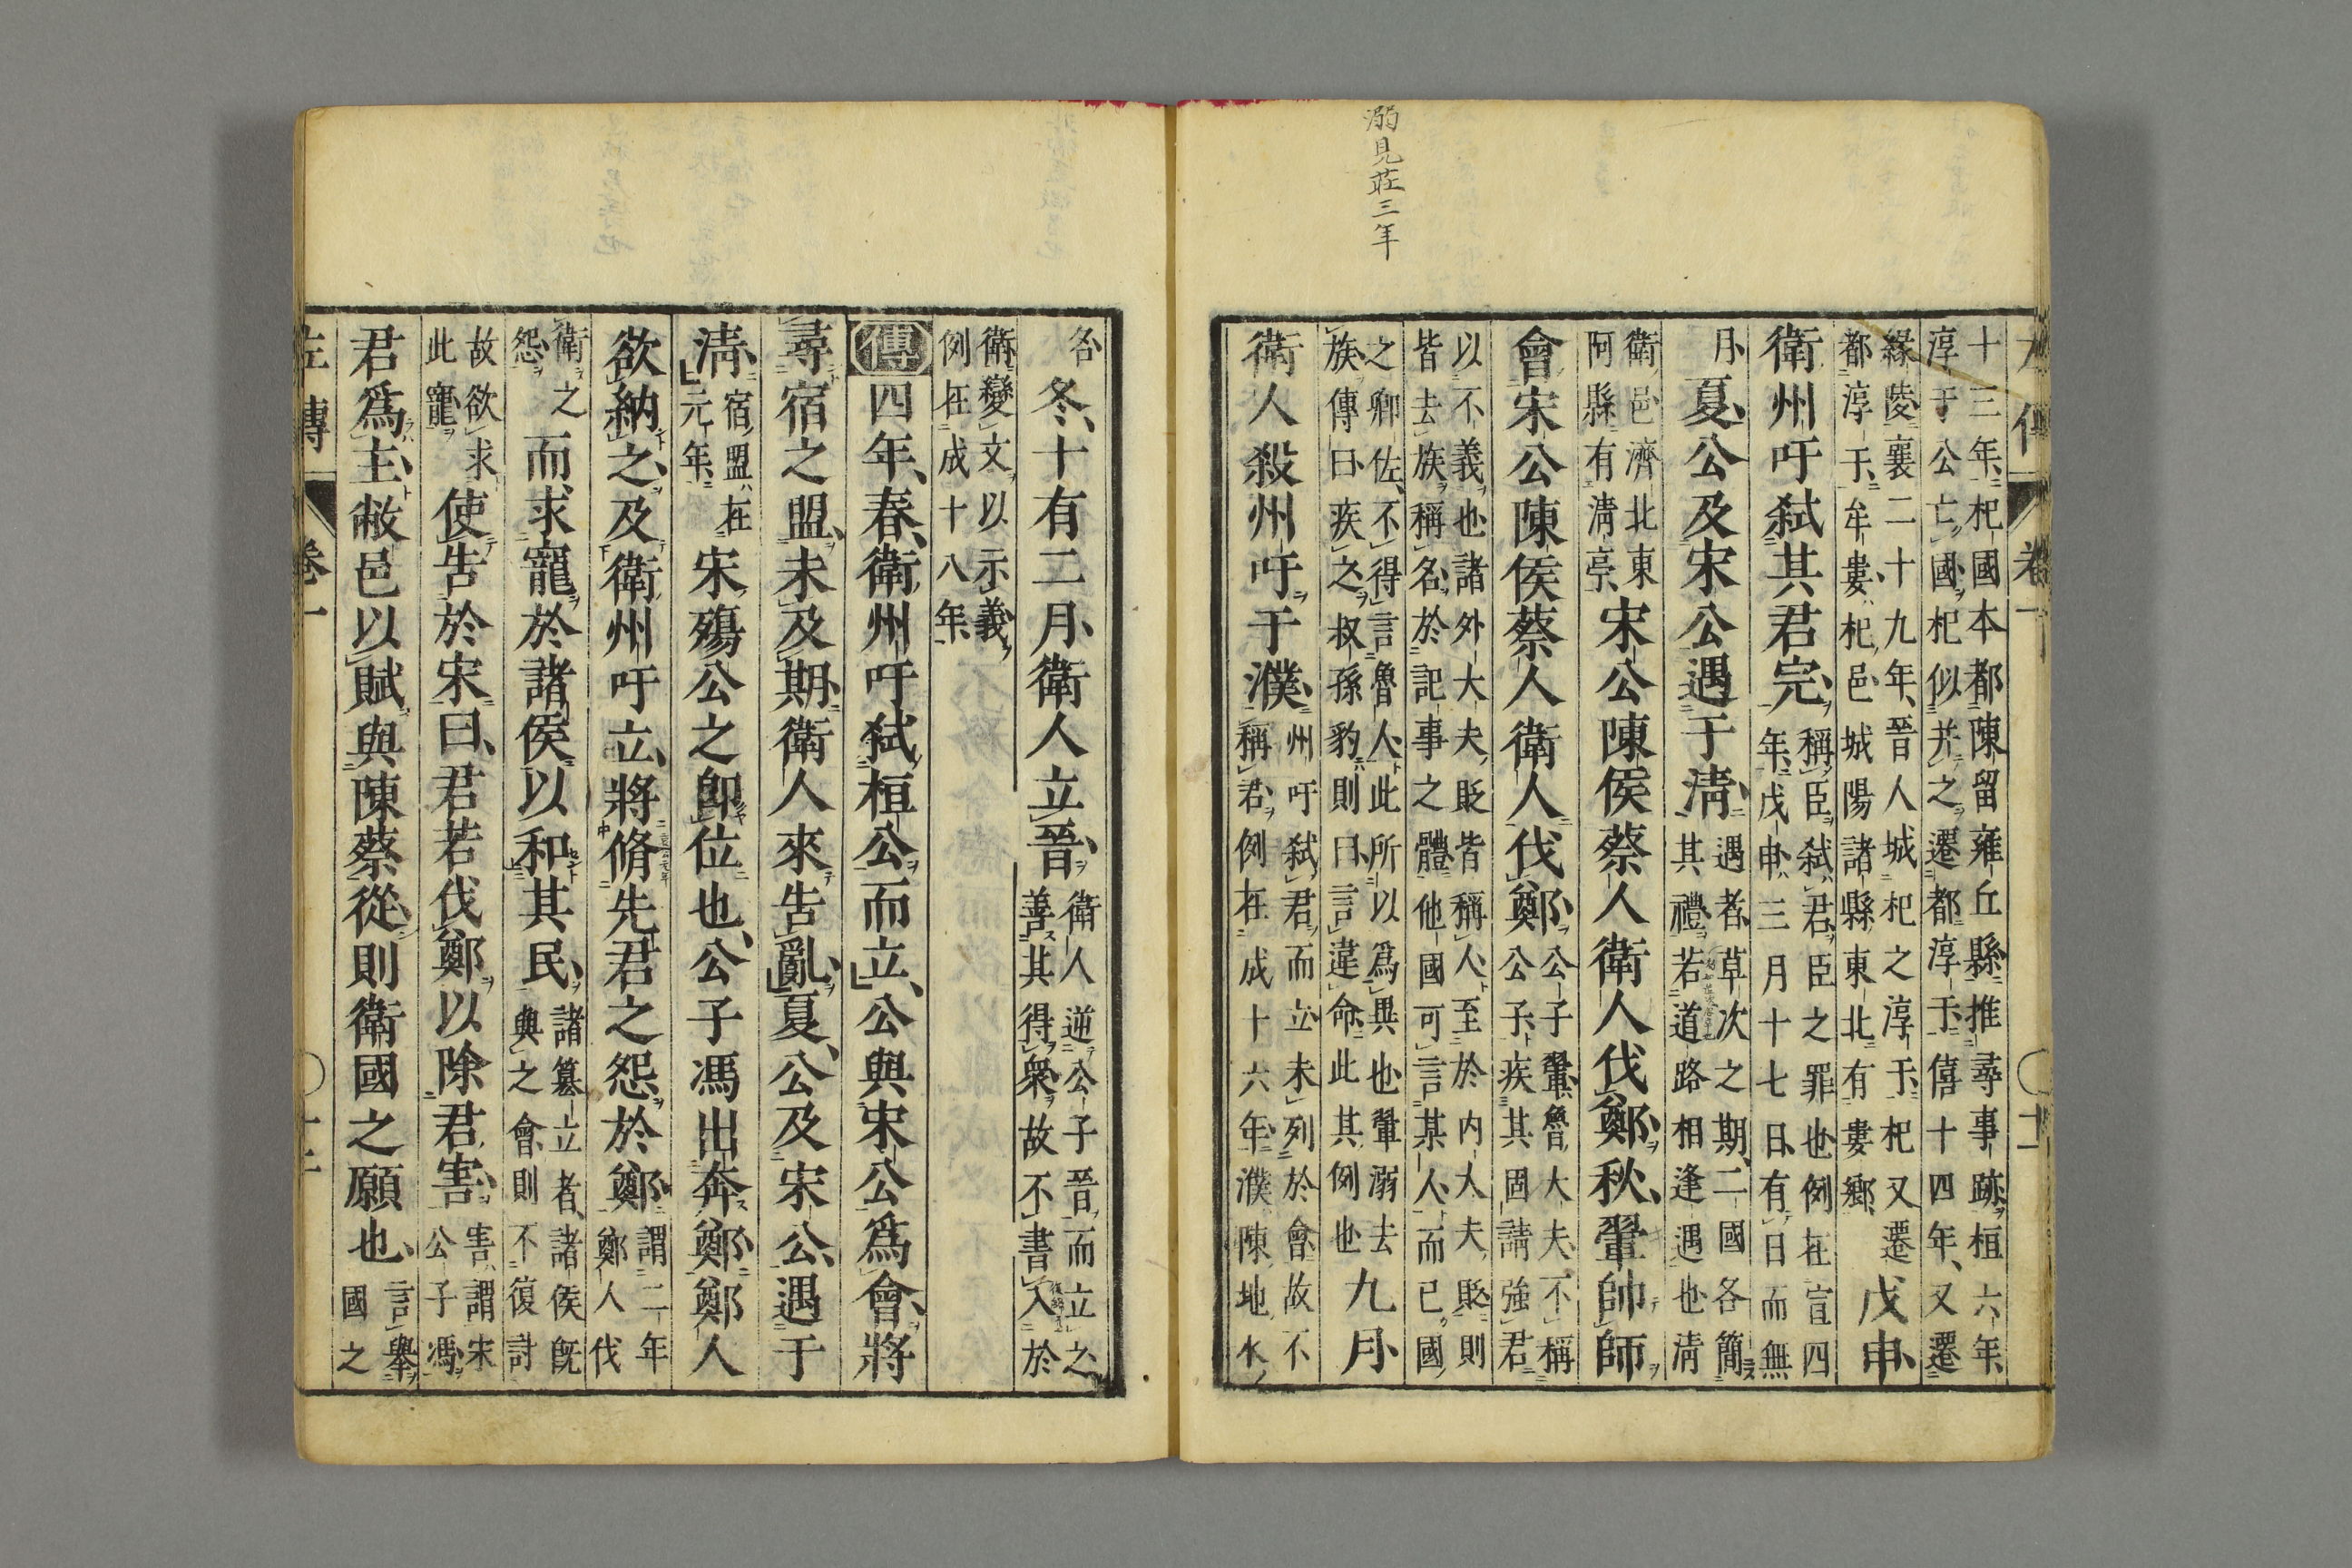 溺見莊三年
十三年杞國本都陳留雍丘縣推尋事跡桓六年
淳于公亡國杞似并之遷都淳于僖十四年又遷
緣陵襄二十九年晉人城杞之淳于杞又遷
都淳于牟婁杞邑城陽諸縣東北有婁鄉
戊申
衛州吁弑其君完
稱臣弑君臣之罪也例在宣四
年戊申三月十七日有日而無
月
夏公及宋公遇于清
遇者草次之期二國各簡
其禮若道路相逢遇也清
衛邑濟北東
阿縣有清亭
宋公陳侯蔡人衛人伐鄭秋翬帥師
會宋公陳侯蔡人衛人伐鄭
公子翬魯大夫不稱
公子疾其固請強君
以不義也諸外大夫貶皆稱人至於內大夫貶則
皆去族稱名於記事之體他國可言某人而已國
之卿佐不得言魯人此所以為異也翬溺去
族傳曰疾之叔孫豹則曰言違命此其例也
九月
衛人殺州吁于濮
州吁弑君而立未列於會故不
稱君例在成十六年濮陳地水
名
冬十有二月衛人立晉
衛人逆公子晉而立之
善其得眾故不書入於
衛變文以示義
例在成十八年
傳四年春衛州吁弑桓公而立公與宋公為會將
尋宿之盟未及期衛人來告亂夏公及宋公遇于
清
宿盟在
元年
宋殤公之卽位也公子馮出奔鄭鄭人
欲納之及衛州吁立將脩先君之怨於鄭
謂二年
鄭人伐
衛之
怨
而求寵於諸侯以和其民
諸篡立者諸侯旣
與之會則不復討
故欲求
此寵
使告於宋曰君若伐鄭以除君害
害謂宋
公子馮
君為主敝邑以賦與陳蔡從則衛國之願也
言舉
國之
左傳 卷一